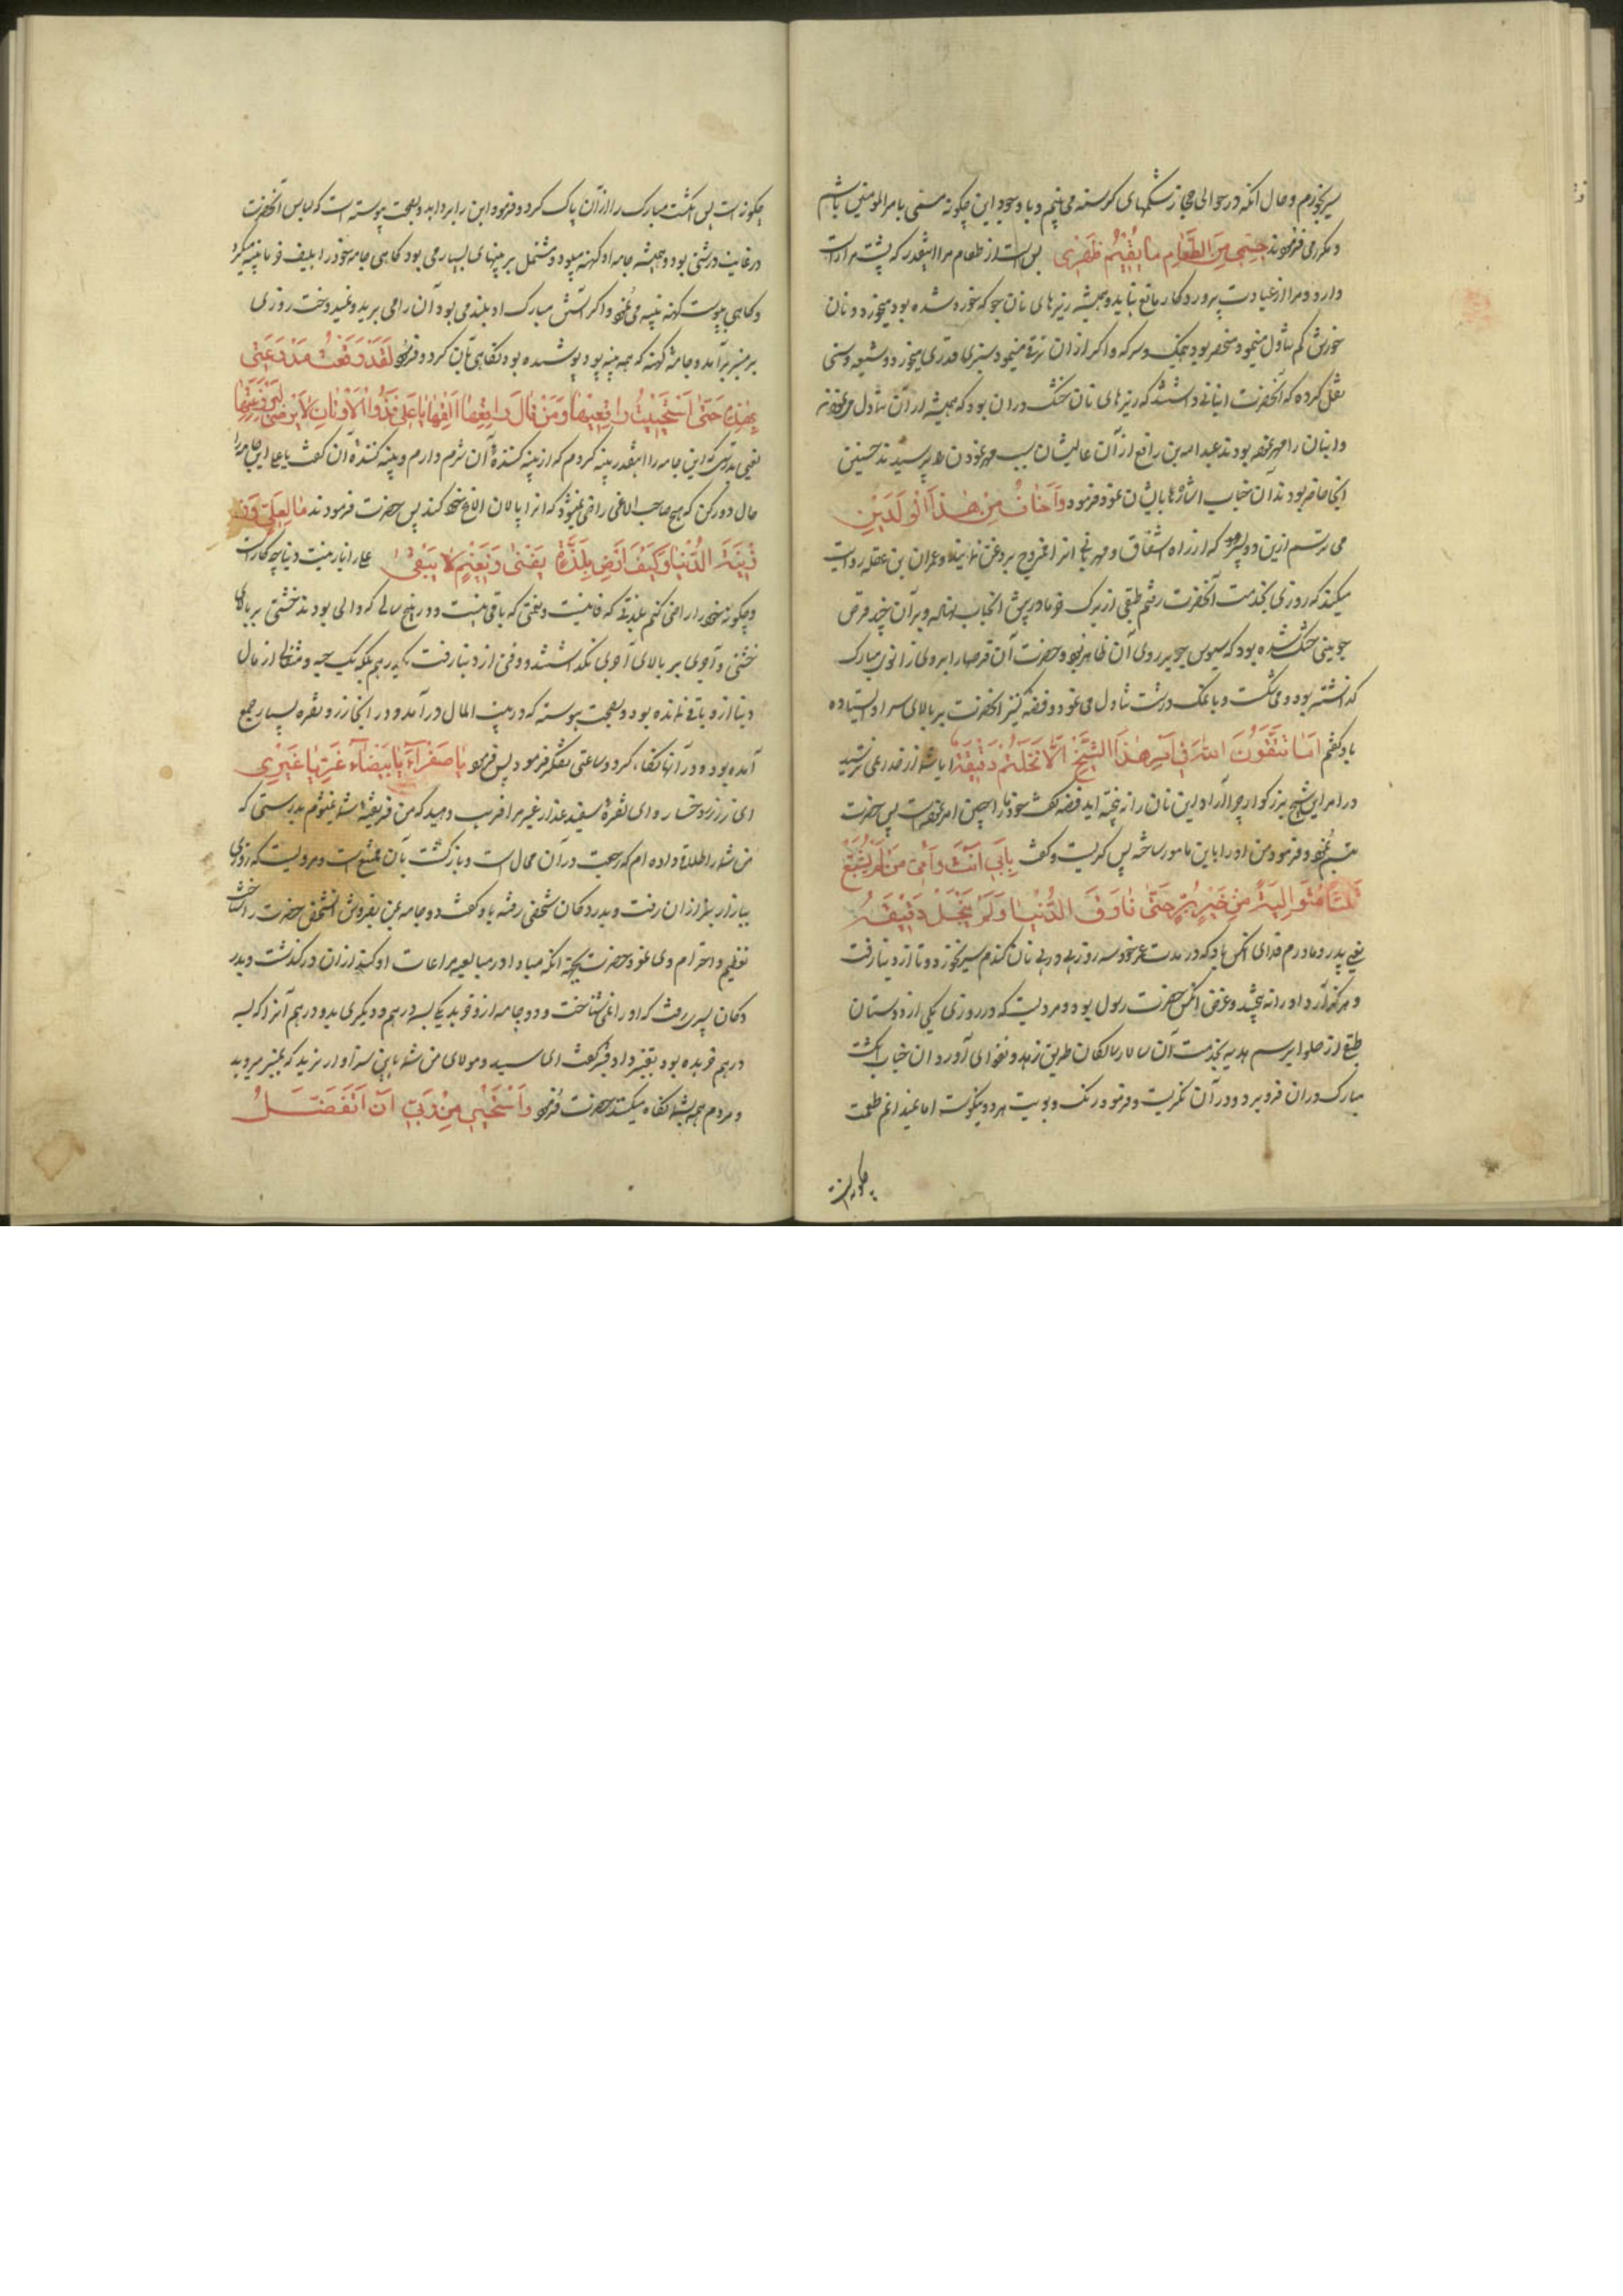 سیر بخورم و حال آنکه در حوالی حجاز شکمهای گرسنه می بینم و با وجود این چگونه مسمی بامیر المؤمنین باشم
و مکرر می فرمودند حسبی من الطعام ما یقیم ظهری بس است از طعام مرا اینقدر که پشت مرا راست
دارد و مرا از عبادت پروردگار مانع نیاید و همیشه ریزهای نان جو که خورد شده بود میخورد و نان
خورش کم تناول مینمود منحصر بود بنمک و سرکه و اگر از آن ترقی مینمود سبزی قدری میخورد و شیعه و سنی
نقل کرده که آنحضرت انبانی داشتند که ریزهای نان خشک در آن بود که همیشه از آن تناول می نمودند
و انبان را مهر نموده بودند عبد الله بن رافع از آن عالیشان سبب مهر نمودن را پرسیدند حسنین
آنجا حاضر بودند آن جناب اشاره بایشان نموده فرمود و اخاف من هذا الولدین
می ترسم ازین دو پسر خود که از راه اشفاق و مهربانی انرا ممزوج بروغن نمایند و عمران بن عقله روایت
میکند که روزی بخدمت آنحضرت رفتم طبقی از برگ خرما در پیش آنجناب نهاده و بر آن چند قرص
جوینی خشک شده بود که سبوس جو بر روی آن ظاهر بود و حضرت آن قرصها را بر روی زانوی مبارک
گذاشته بود و می شکست و با نمک درشت تناول می نمود و فضه کنیز آنحضرت بر بالای سر او ایستاده
باو گفتم اما تتقون الله فی امر هذا الشیخ الا تنخلتم دقیقه ایا شما از خدا نمی ترسید
در امر این شیخ بزرگوار چرا آرد این نان را نه پخته اید فضه گفت خود مرا چنین امر نموده است پس حضرت
تبسم نمود و فرمود من او را باین مامور ساخته پس گریست و گفت بابی انت و امی من لم یشبع
ثلثا متوالیة من خبز بر حتی فارق الدنیا و لم ینخل دقیقه
یعنی پدر و مادرم فدای آنکس باد که در مدت عمر خود سه روز پی در پی نان گندم سیر نخورد و تا از دنیا رفت
و هرگز آرد او را نه بیختند و غرض آنکس حضرت رسول بود و مرویست که در روزی یکی از دوستان
طبقی از حلوا برسم هدیه بخدمت آن سالار سالکان طریق زهد و تقوای آورد آن جناب انگشت
مبارک در آن فرو برد و در آن نگریست و فرمود رنگ و بویت هر دو نیکوست اما نمیدانم طعمت
چگونه است
چگونه است پس انگشت مبارک را از آن پاک کرد و فرمود این را بردارید و بصحت پیوسته است که لباس آنحضرت
در غایت درشتی بود و همیشه جامه او کهنه میبود و مشتمل بر پینهای بسیار می بود گاهی جامه خود را بلیف خرما پینه میکرد
و گاهی بپوست کهنه پینه می نمود و اگر آستین مبارک او بلند می بود آن را می برید و نمیدوخت روزی
بر منبر برآمد و جامهٔ کهنه که همه پینه بود پوشیده بود نگاهی بآن کرد و فرمود لقد رقعت مدرعتی
هذه حتی استحییت راقعها و من قال راقعها القها یا علی
یعنی بدرستی که این جامه را اینقدر پینه کردم که از پینه کنندهٔ آن شرم دارم و پینه کنندهٔ آن گفت یا علی این جامه را
حال دور کن که هیچ صاحب الاغی راضی نمیشود که انرا پالان الاغ خود کند پس حضرت فرمودند ما لعلی و
زینة الدنیا و کیف ارضی بلذة یفنی و نعیم لا یبقی علی را با زینت دنیا چه کار است
و چگونه خود را راضی کنم بلذتی که فانیست و نعمتی که باقی نیست و در پنج سالی که والی بودند خشتی بر بالای
خشتی و آجری بر بالای آجری نگذاشتند و وقتی از دنیا رفت یک درهم بلکه یک حبه و مثقالی از مال
دنیا از و باقی نمانده بود و بصحت پیوسته که در بیت المال در آمد و در آنجا زر و نقره بسیار جمع
آمده بود و در آنها نگاه کرد و ساعتی تفکر فرمود پس فرمود یا صفراء یا بیضاء غرّیا غیری
ای زر زرد رخسار و ای نقرهٔ سفید عذار غیر مرا فریب دهید که من فریفتهٔ شما نمیشوم بدرستی که
من شما را طلاق داده ام که رجعت در آن محال است و بازگشت بآن ممتنع است و مرویست که روزی
ببازار بزازان رفت و بدر دکان شخصی رفته باو گفت دو جامه بمن بفروش آنشخص حضرت را شناخت
تعظیم و احترام وی نمود حضرت بجهة آنکه مبادا در مبایعه مراعات او کند از آن در گذشت و بدر
دکان پسری رفت که او را نمی شناخت و دو جامه از او خرید یکی بسه درهم و دیگری بدو درهم آنرا که بسه
درهم خریده بود بقنبر داد قنبر گفت ای سید و مولای من شما باین سزاوار ترید که بمنبر میروید
و مردم همه بشما نگاه میکنند حضرت فرمود و استحیی من ربی ان اتفضل